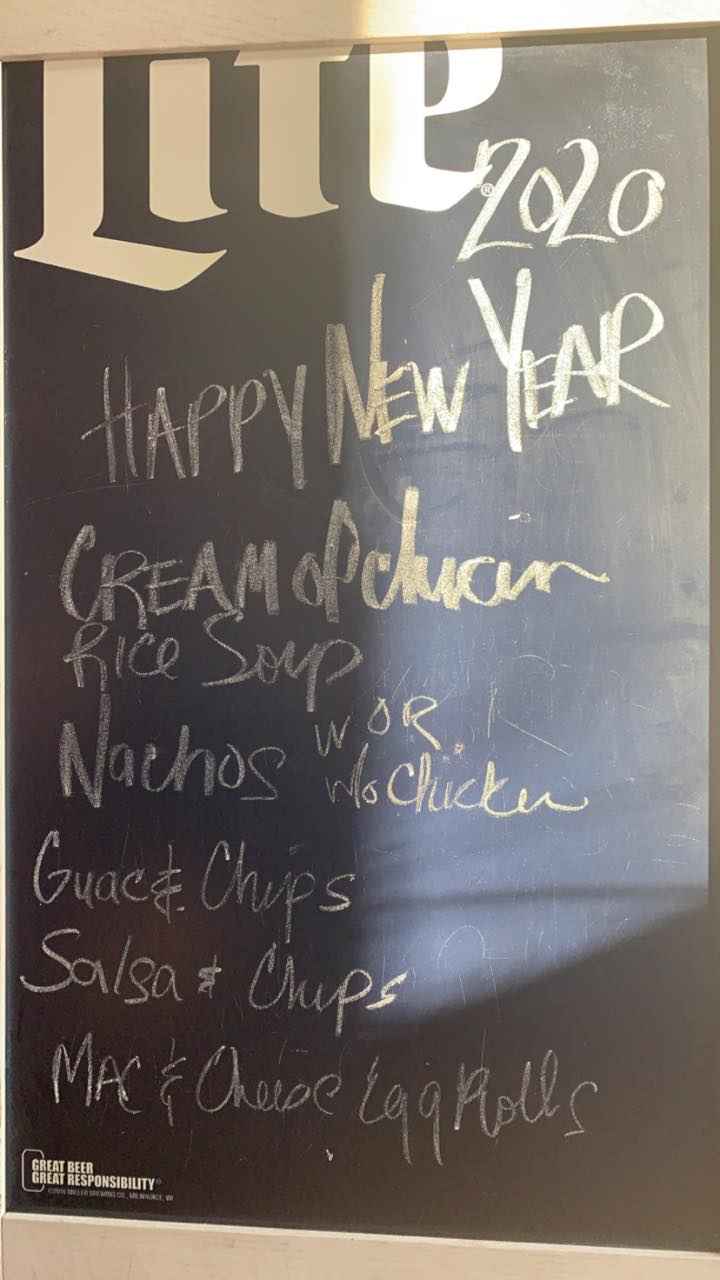 Lite®
2020
HAPPY NEW YEAR
CREAM of chicin
Rice Soup
Nachos w OR
w/o Chicken
Guac & Chips
Salsa & Chips
MAC & Cheese Egg Rolls
GREAT BEER
GREAT RESPONSIBILITY®
©2016 MILLER BREWING CO., MILWAUKEE, WI